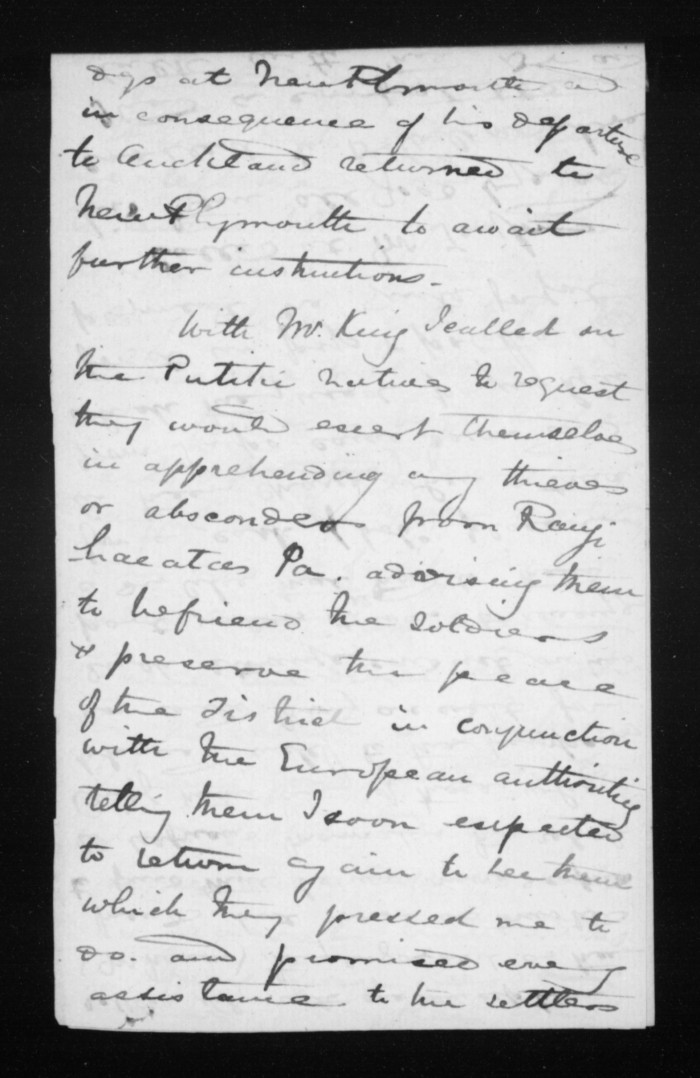 days at New Plymouth and
in consequence of his departure
to Auckland returned to
New Plymouth to await
further instructions.
With Mr. King I called on
the Putikie natives to request
they would exert themselves
in apprehending any thieves
or absconders from Rangi
haeatas Pa. advising them
to befriend the soldiers
& preserve the peace
of the district in conjunction
with the European authorities
telling them I soon expected
to return again to see them
which they pressed me to
do. and promised every
assistance to the settlers